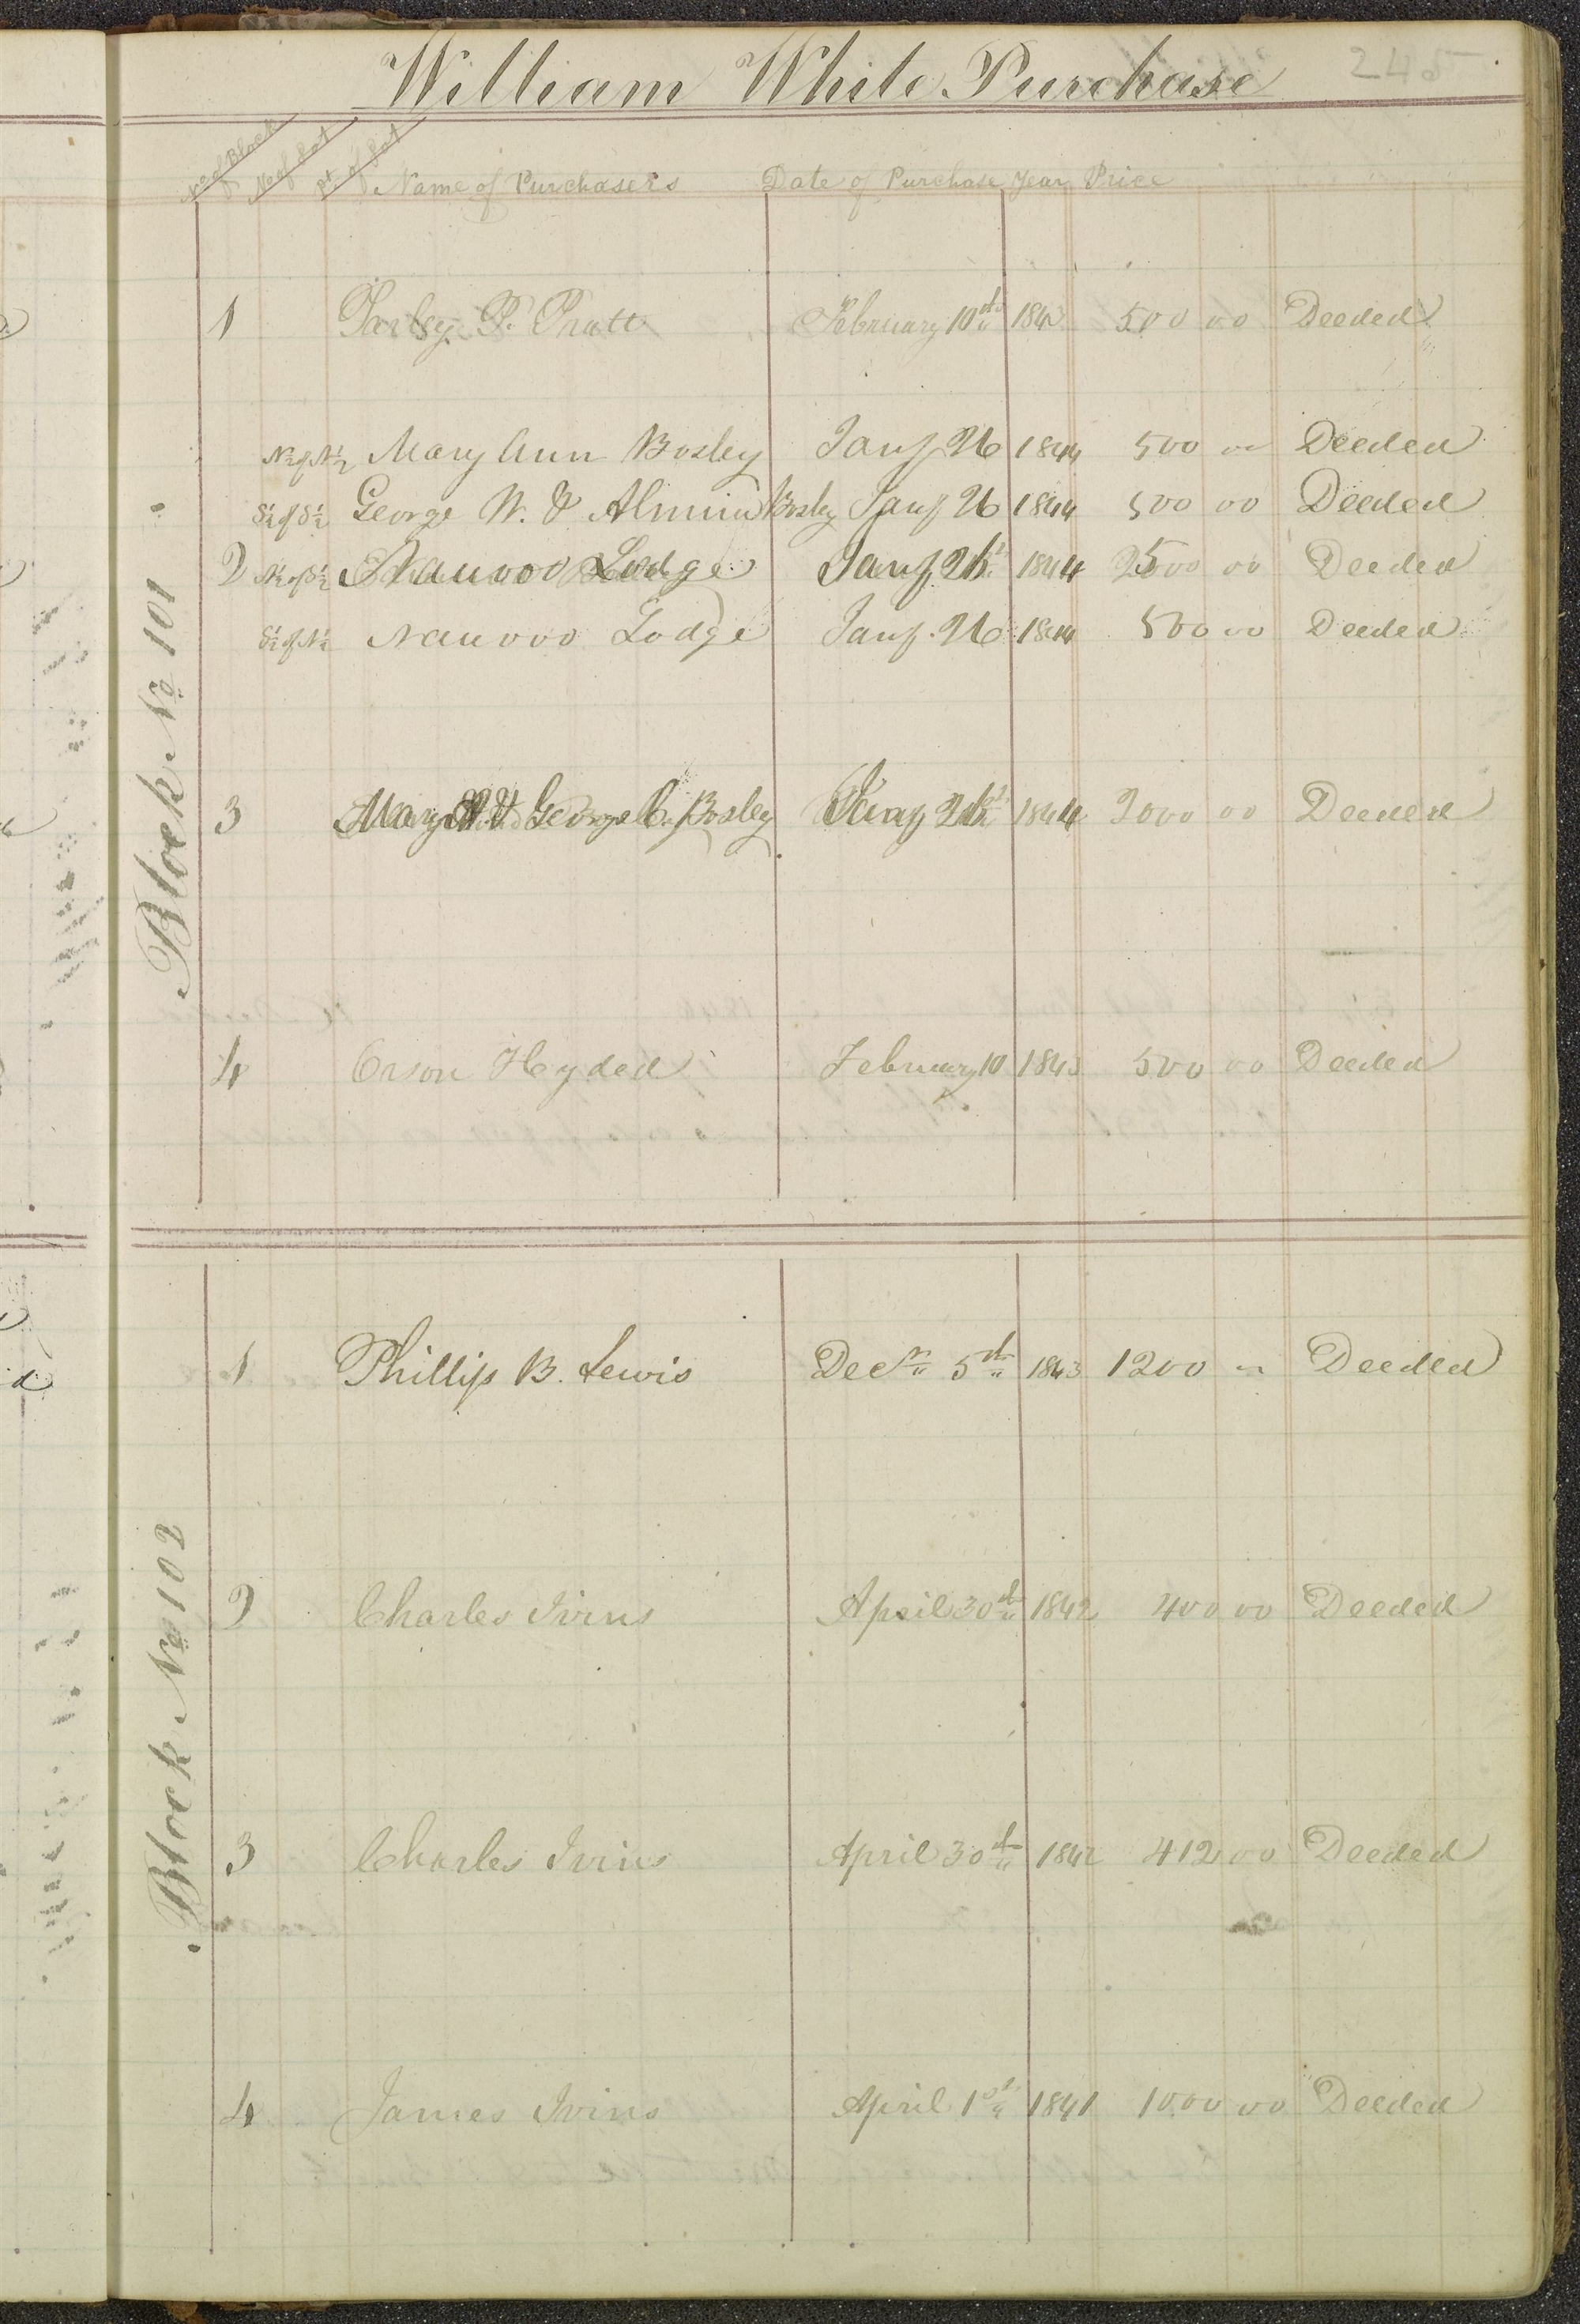 William White Purchase 245
No of Block No of Lot pt. of Lot Name of Purchasers Date of Purchase Year Price
Block No 101
1 Parley P. Pratt February 10th 184 500 00 Deeded
N½ of N½ Mary Ann Bosley Jany 26 1844 500 00 Deeded
S½ of S½ George W. & Almira Bosley Jany 26 1844 500 00 Deeded
2 N½ of S½ Nauvoo Lodge Jany 26 1844 500 00 Deeded
S½ of N½ Nauvoo Lodge Jany. 26 1844 500 00 Deeded
3 Mary A & George C. Bosley Jany 26 1844 2000 00 Deeded
4 Orson Hyded February 10 184 500 00 Deeded
Block No 102
1 Phillip B. Lewis Decr 5th 1843 1200 Deeded
2 Charles Ivins April 30th 1842 400 00 Deeded
3 Charles Ivins April 30th 1842 412 00 Deeded
4 James Ivins April 1st 1841 1000 00 Deeded